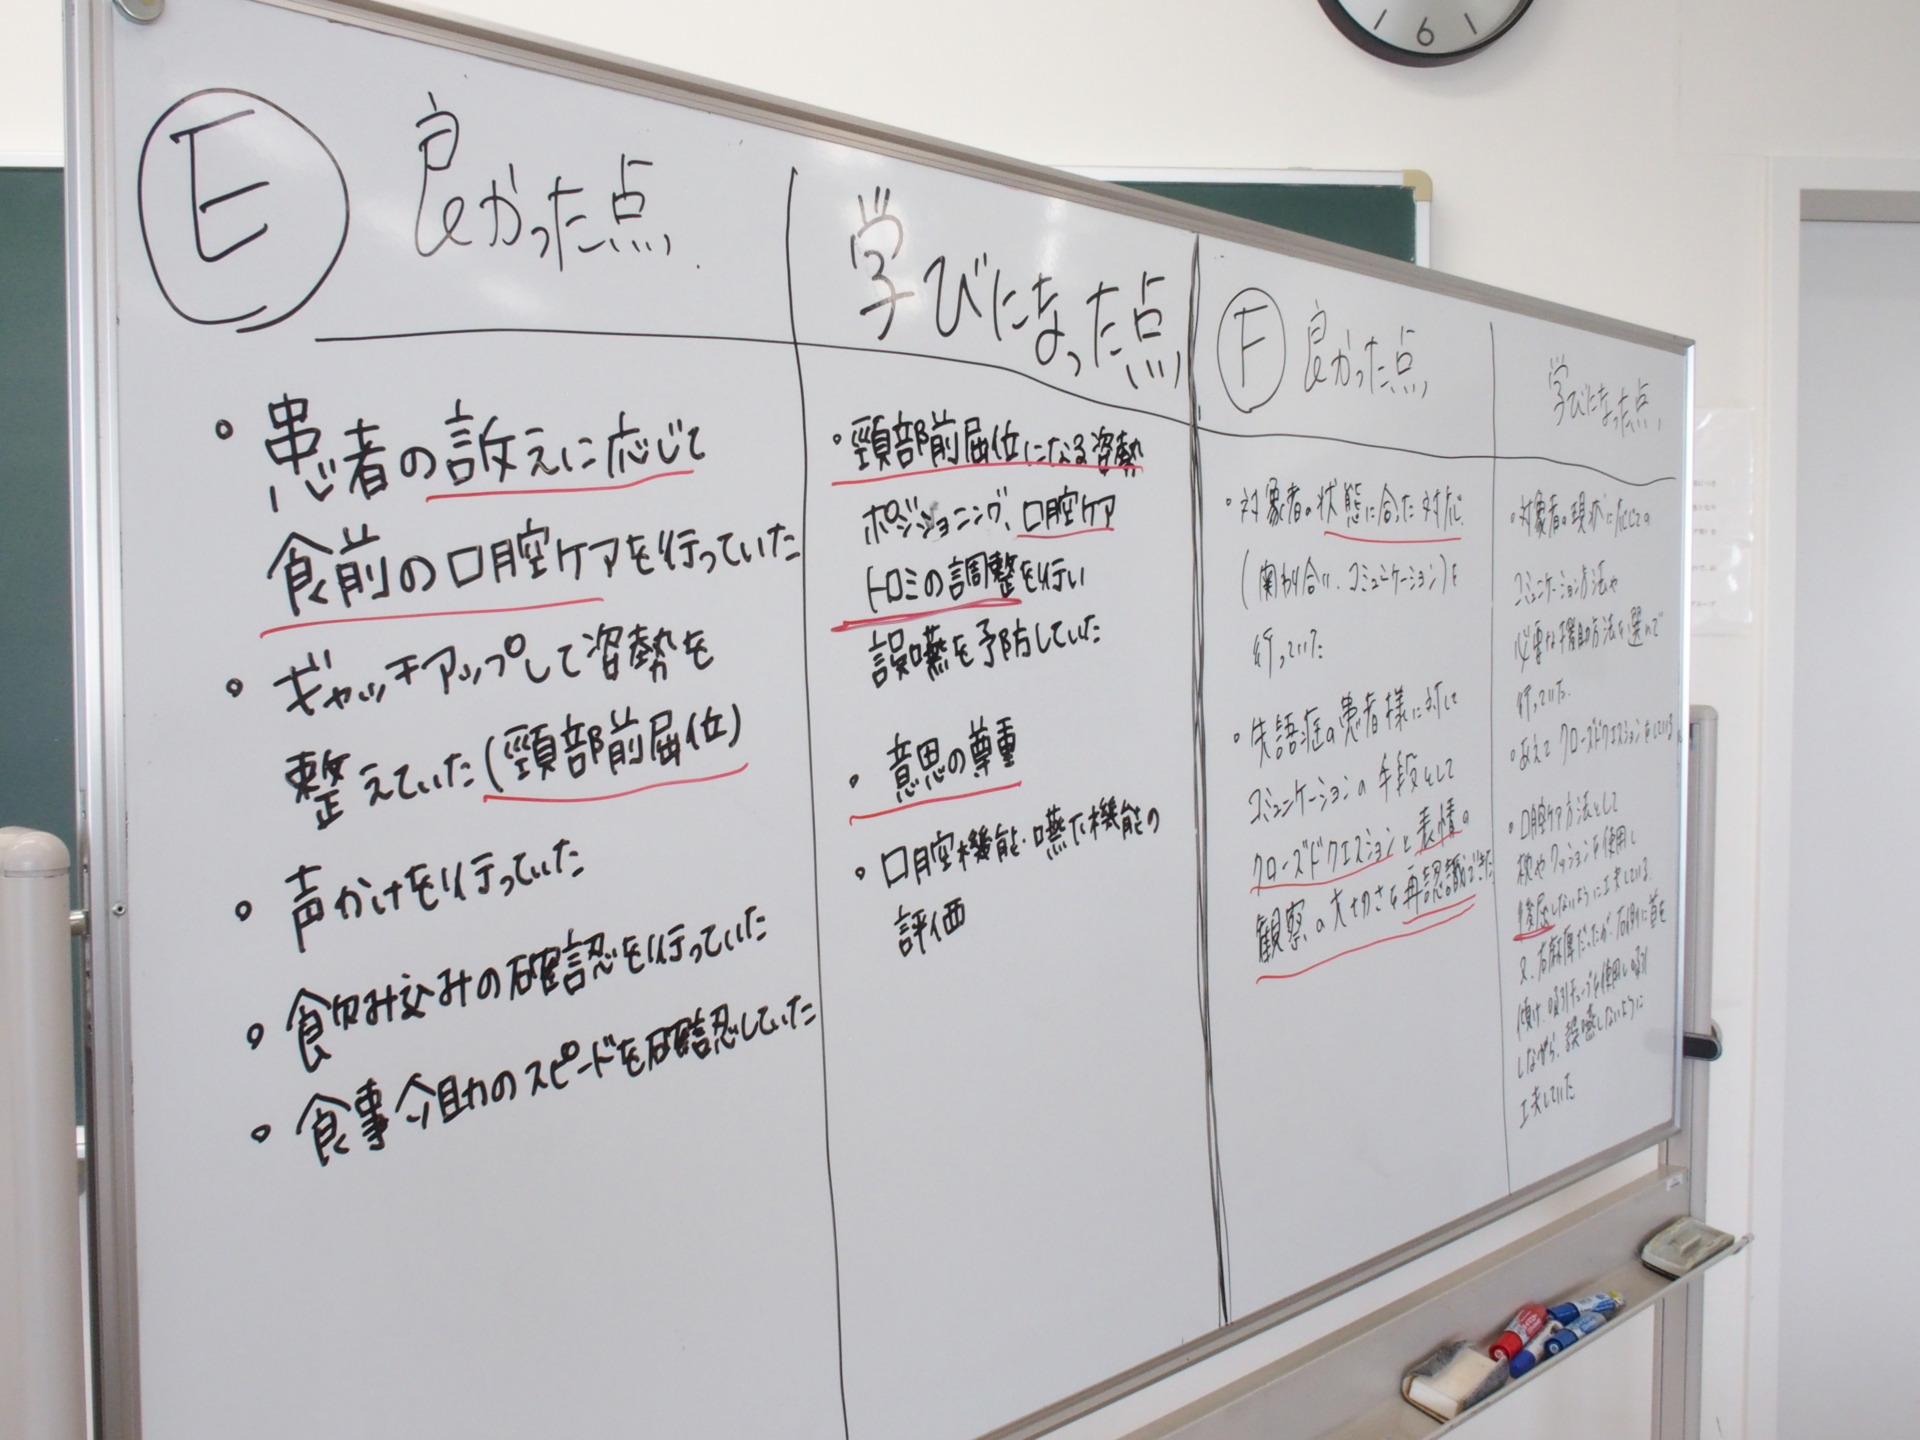 E
良かった点
・患者の訴えに応じて
食前の口腔ケアを行っていた
・ギャッチアップして姿勢を
整えていた(頸部前屈位)
・声かけを行っていた
・飲み込みの確認を行っていた
・食事介助のスピードを確認していた
学びになった点
・頸部前屈位になる姿勢
ポジショニング、口腔ケア
トロミの調整を行い
誤嚥を予防していた
・意思の尊重
・口腔機能・嚥下機能の
評価
F
良かった点
・対象者の状態に合った対応
(関わり合い、コミュニケーション)を
行っていた
・失語症の患者様に対して
コミュニケーションの手段として
クローズドクエスションと表情の
観察の大切さを再認識できた
学びになった点
・対象者の現状に応じての
コミュニケーション方法や
必要な援助方法を選んで
行っていた.
・あえてクローズドクエスションをしている
・口腔ケア方法として
枕やクッションを使用し
後屈しないように工夫している.
又、右麻痺だったが、右側に首を
傾け、吸引チューブを使用し吸引
しながら、誤嚥しないように
工夫していた
6